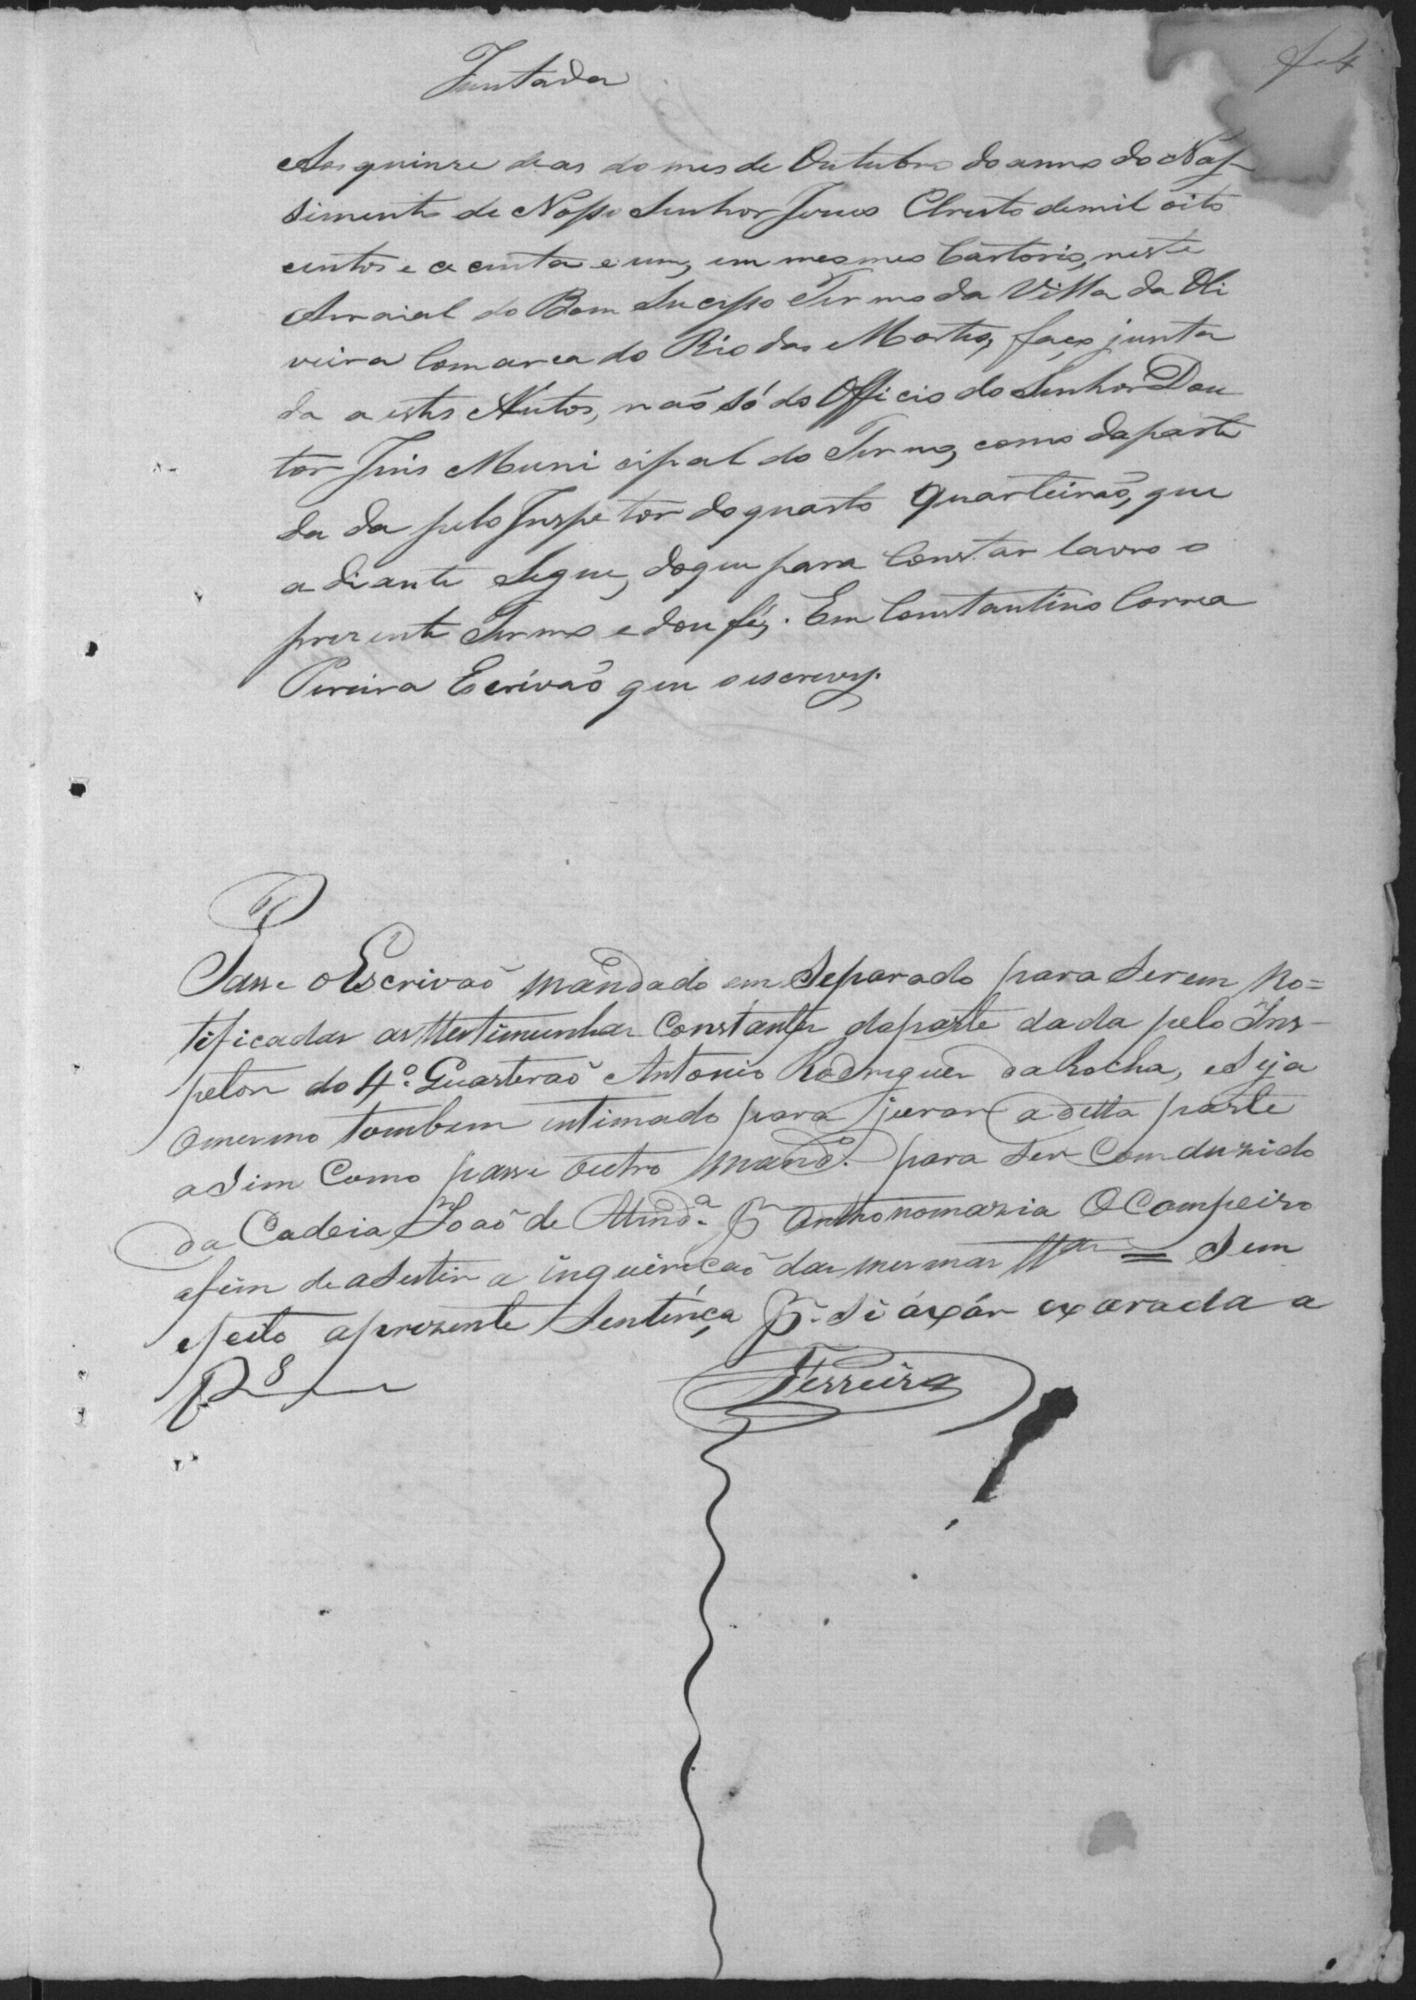 f 4
Juntada
Aos quinze dias do mes de Outubro do anno do Nas-
simento de Nosso Senhor Jesus Christo de mil oito
centos e cecenta e um, em meo Cartorio, neste
Arraial do Bom Sucesso Termo da Villa da Oli
veira Comarca do Rio das Mortes, faço junta
da a estes Autos, não só do Officio do Senhor Dou
tor Juis Municipal do Termo, como da parte
da da pelo Inspetor do quarto Quarteirão, que
a diante Segue, do que para Constar lavro o
prezente Termo e dou fé. Eu Constantino Correa
Pereira Escrivão que o escrevy.
Passe o Escrivaõ mandado em Separado para Serem no=
tificadas as testimunhas Constantes da parte dada pelo Ins-
petor do 4º Quarteraõ Antonio Rodrigues da Rocha, e Seja
o mesmo tambem intimado para jurar a ditta parte
aSim Como passe outro mandº. para Ser Comduzido
da Cadeia Joaõ de Almdª. pr antonomazia O Campeiro
afim de aSestir a inquiriçaõ das mesmas ttas = Sem
efeito a prezente Sentença pr. Si áxár exarada a
f 8
Ferreira